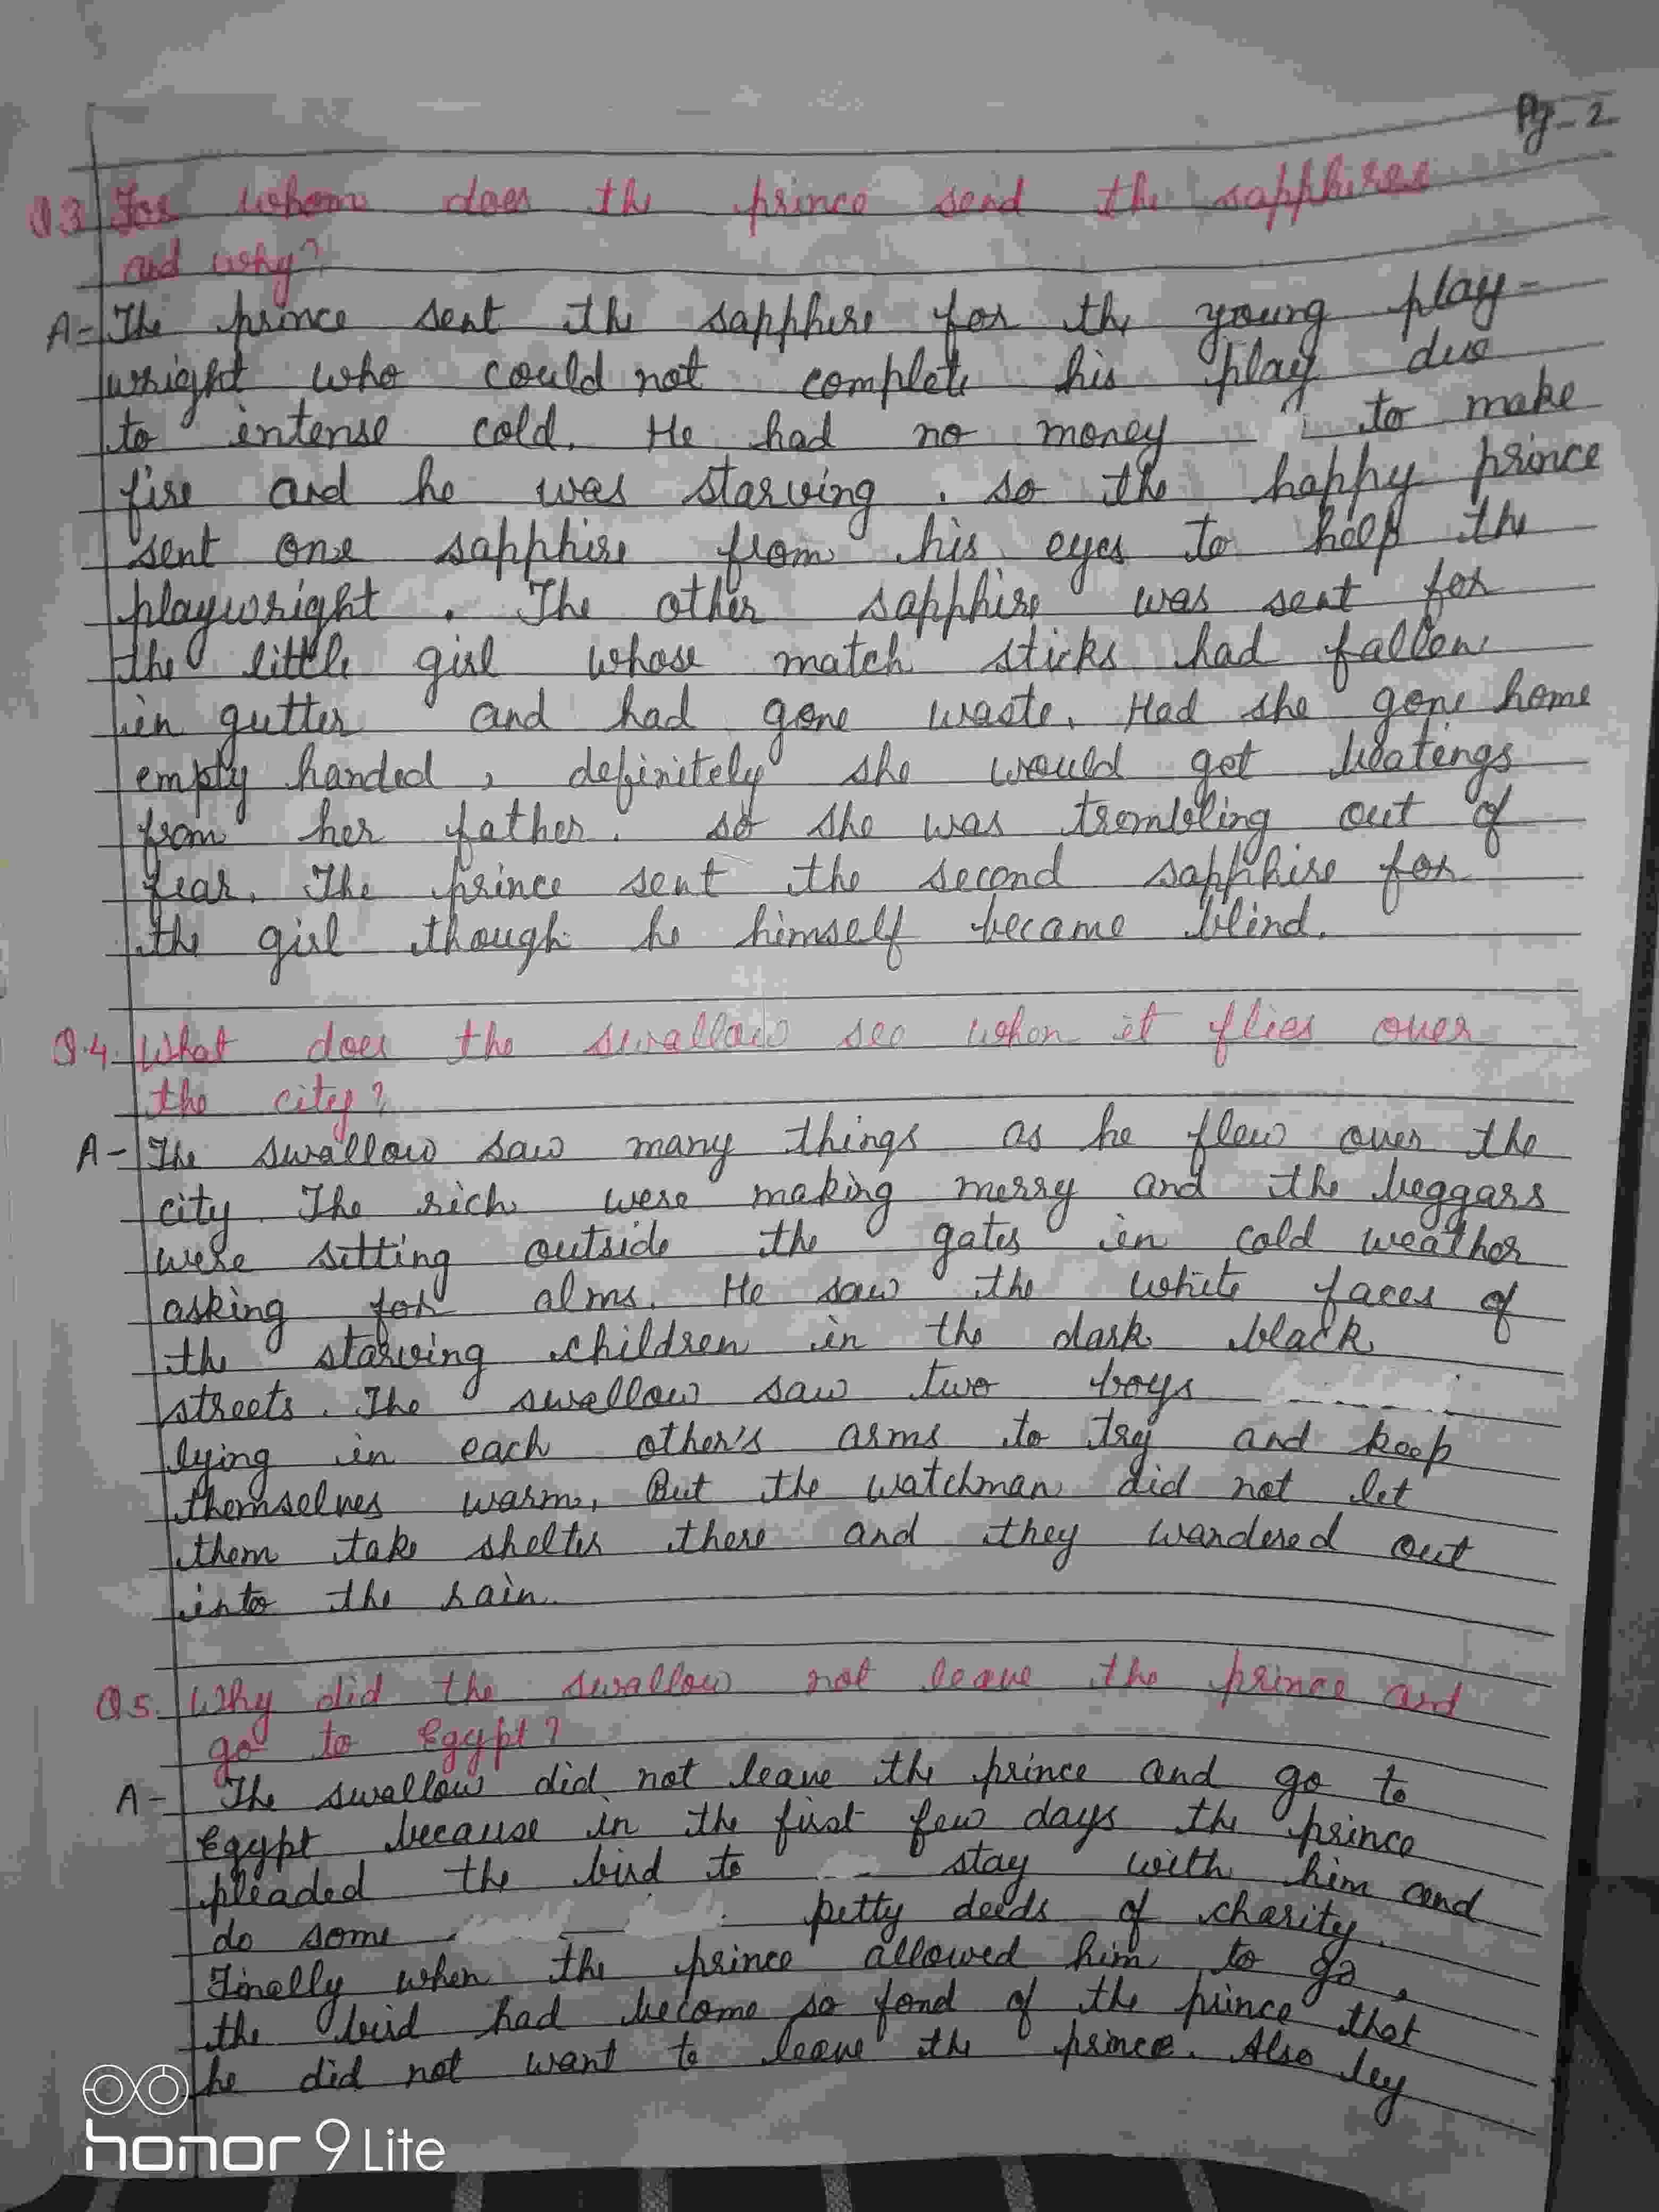 Pg-2
Q3 For whom does the prince send the sapphires
and why?
A- The prince sent the sapphire for the young play-
wright who could not complete his play due
to intense cold. He had no money to make
fire and he was starving. so the happy prince
sent one sapphire from his eyes to help the
playwright. The other sapphire was sent for
the little girl whose match sticks had fallen
in gutter and had gone waste. Had she gone home
empty handed, definitely she would get beatings
from her father. so she was trembling out of
fear. The prince sent the second sapphire for
the girl though he himself became blind.
Q.4. What does the swallow see when it flies over
the city?
A- The swallow saw many things as he flew over the
city. The rich were making merry and the beggars
were sitting outside the gates in cold weather
asking for alms. He saw the white faces of
the starving children in the dark black
streets. The swallow saw two boys
lying in each other's arms to try and keep
themselves warm. But the watchman did not let
them take shelter there and they wandered out
into the rain.
Q5. Why did the swallow not leave the prince and
go to Egypt?
A- The swallow did not leave the prince and go to
Egypt because in the first few days the prince
pleaded the bird to stay with him and
do some petty deeds of charity.
Finally when the prince allowed him to go,
the bird had become so fond of the prince that
he did not want to leave the prince. Also by
honor 9 Lite